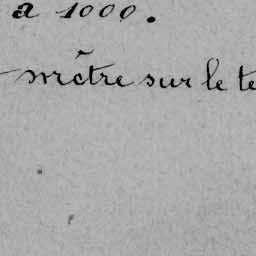 a 1000.
mètre sur le te